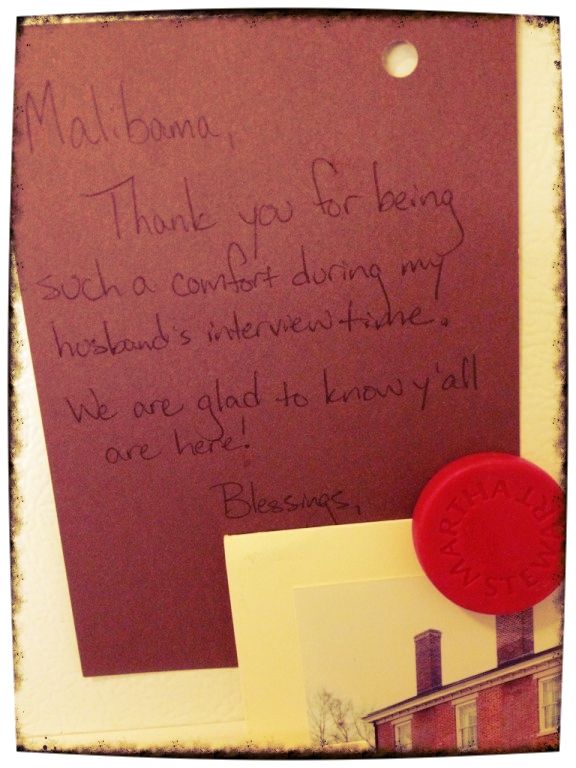 Malibama,
Thank you for being
such a comfort during my
husband's interview time.
We are glad to know y'all
are here!
Blessings,
MARTHA STEWART